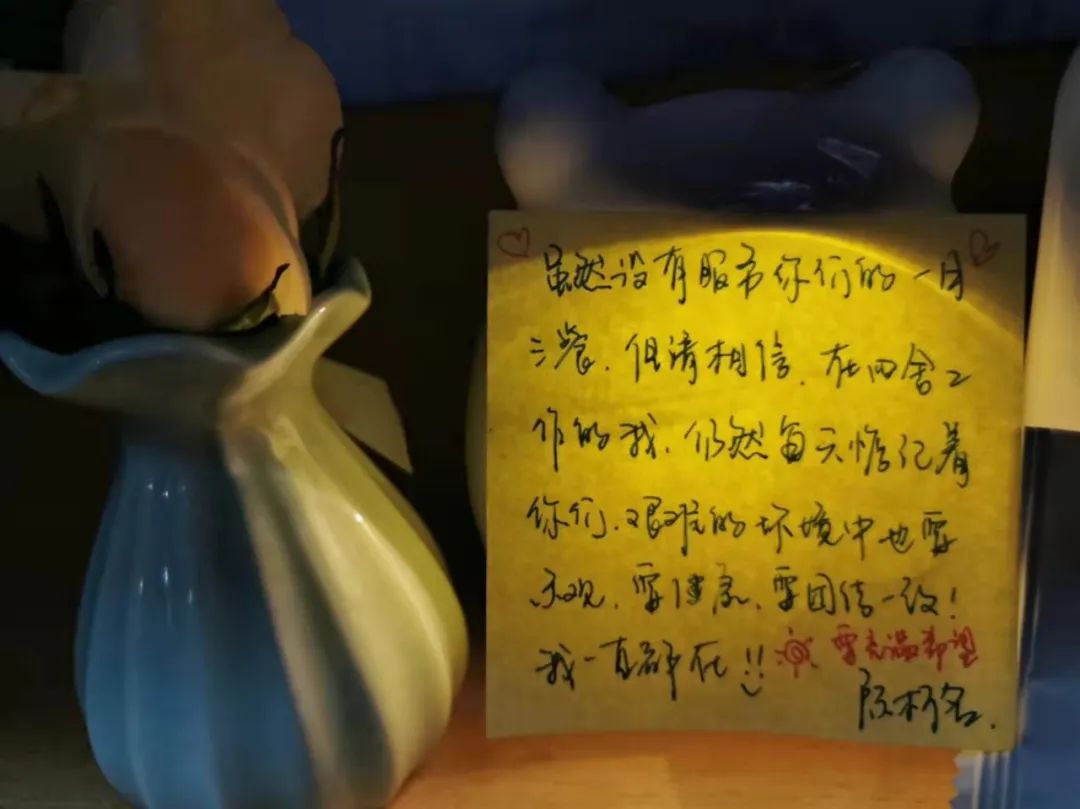 虽然没有服务你们的一日
三餐,但请相信,在宿舍工
作的我,仍然每天惦记着
你们,艰难的环境中也要
乐观,要健康,要团结一致!
我一直都在!! 要充满希望
陈